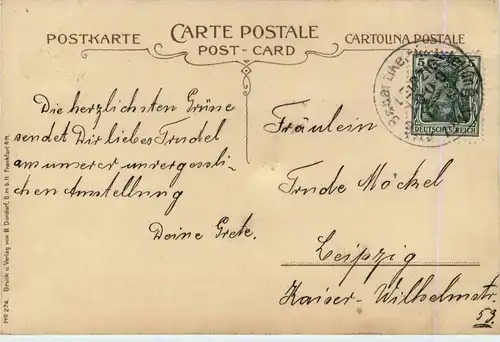 POSTKARTE
CARTE POSTALE
POST-CARD
CARTOLINA POSTALE
DEUTSCHES REICH
Die herzlichsten Grüße
sendet Dir liebes Trudel
aus unserer unvergessli-
chen Ausstellung
Deine Grete.
Fräulein
Trude Möckel
Leipzig
Kaiser-Wilhelmstr.
53.
No 274. Druck u. Verlag von B. Dondorf, G m b H Frankfurt a/M.